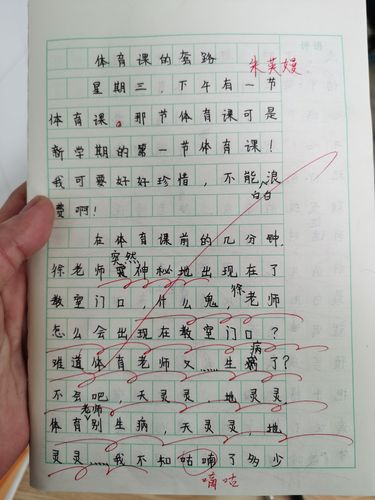 体育课的套路
朱英嫚
评语
星期三，下午有一节
体育课。那节体育课可是
新学期的第一节体育课！
我可要好好珍惜，不能白白浪
费啊！
在体育课前的几分钟，
徐老师突然神秘地出现在了
教室门口，什么鬼，徐老师
怎么会出现在教室门口？
难道体育老师又……生病了？
病
不会吧，天灵灵，地灵灵
体育老师别生病，天灵灵，地
灵灵……我不知咕喃了多少
嘀咕